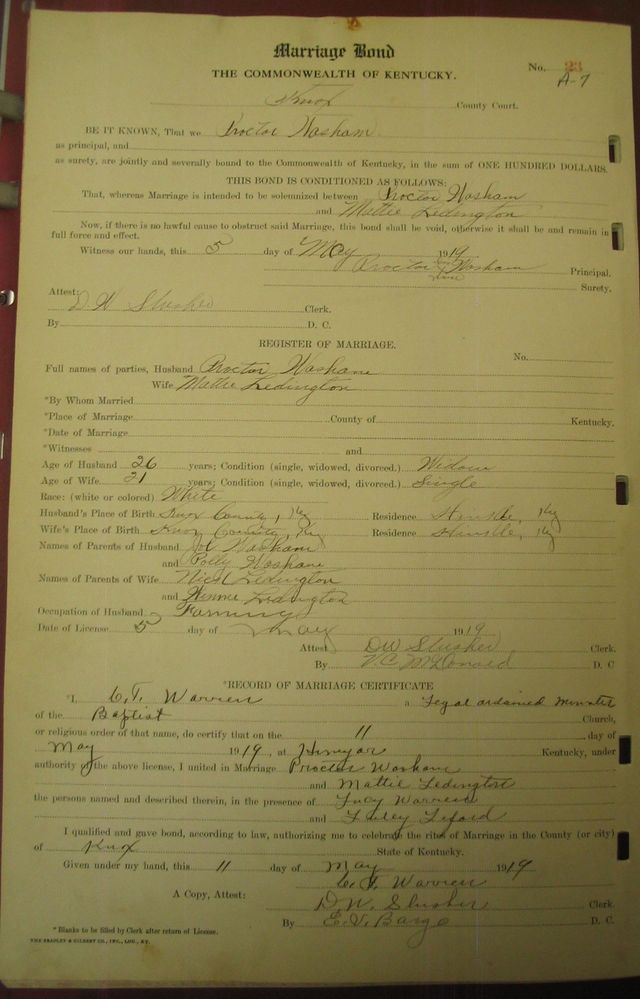 Marriage Bond
No. 23
THE COMMONWEALTH OF KENTUCKY.
A-7
Knox County Court.
BE IT KNOWN, That we Proctor Washam
as principal, and
as surety, are jointly and severally bound to the Commonwealth of Kentucky, in the sum of ONE HUNDRED DOLLARS.
THIS BOND IS CONDITIONED AS FOLLOWS:
That, whereas Marriage is intended to be solemnized between Proctor Washam
and Mattie Ledington
Now, if there is no lawful cause to obstruct said Marriage, this bond shall be void, otherwise it shall be and remain in
full force and effect.
Witness our hands, this 5 day of May 1919
Proctor Washam Principal.
Surety.
Attest:
D W Slusher Clerk.
By D. C.
REGISTER OF MARRIAGE.
No.
Full names of parties, Husband Proctor Washam
Wife Mattie Ledington
*By Whom Married
*Place of Marriage County of Kentucky.
*Date of Marriage
*Witnesses and
Age of Husband 26 years; Condition (single, widowed, divorced.) Widow
Age of Wife 21 years; Condition (single, widowed, divorced.) Single
Race: (white or colored) White
Husband's Place of Birth Knox County, Ky Residence Ky
Wife's Place of Birth Knox County, Ky Residence Ky
Names of Parents of Husband Washam
and Polly Washam
Names of Parents of Wife Nick Ledington
and Ledington
Occupation of Husband Farming
Date of License 5 day of May 1919
Attest DW Slusher Clerk.
By V.C. McDonald D. C
*RECORD OF MARRIAGE CERTIFICATE
*I, C.T. Warren a Legal ordained minister
of the Baptist Church,
or religious order of that name, do certify that on the 11 day of
May 1919, at Himyar Kentucky, under
authority of the above license, I united in Marriage Proctor Washam
and Mattie Ledington
the persons named and described therein, in the presence of Lucy Warren
and
I qualified and gave bond, according to law, authorizing me to celebrate the rites of Marriage in the County (or city)
of Knox State of Kentucky.
Given under my hand, this 11 day of May 1919
C. T. Warren
A Copy, Attest: D W. Slusher Clerk.
By E. V. Bargo D. C.
* Blanks to be filled by Clerk after return of License.
THE BRADLEY & GILBERT CO., INC., LOU., KY.